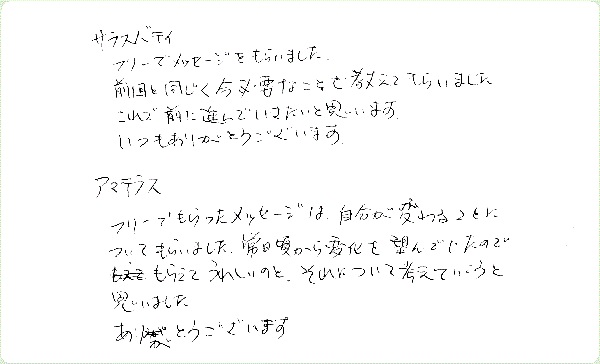 サラスバティ
フリーでメッセージをもらいました。
前回と同じく今必要なことを教えてもらいました
これで前に進んでいきたいと思います。
いつもありがとうございます。
アマテラス
フリーでもらったメッセージは、自分が変わることに
ついてもらいました。常日頃から変化を望んでいたので
もらえてうれしいのと、それについて考えていこうと
思いました
ありがとうございます